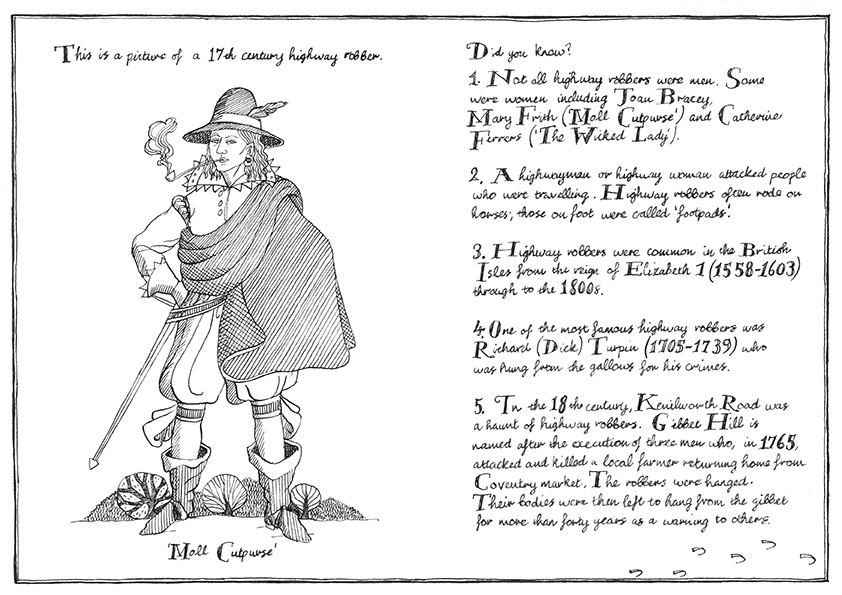 This is a picture of a 17th century highway robber.
'Moll Cutpurse'
Did you know?
1. Not all highway robbers were men. Some
were women including Joan Bracey,
Mary Frith ('Moll Cutpurse') and Catherine
Ferrers ('The Wicked Lady').
2. A highwayman or highway woman attacked people
who were travelling. Highway robbers often rode on
horses; those on foot were called 'footpads'.
3. Highway robbers were common in the British
Isles from the reign of Elizabeth 1 (1558-1603)
through to the 1800s.
4. One of the most famous highway robbers was
Richard (Dick) Turpin (1705-1739) who
was hung from the gallows for his crimes.
5. In the 18th century, Kenilworth Road was
a haunt of highway robbers. Gibbet Hill is
named after the execution of three men who, in 1765,
attacked and killed a local farmer returning home from
Coventry market. The robbers were hanged.
Their bodies were then left to hang from the gibbet
for more than forty years as a warning to others.